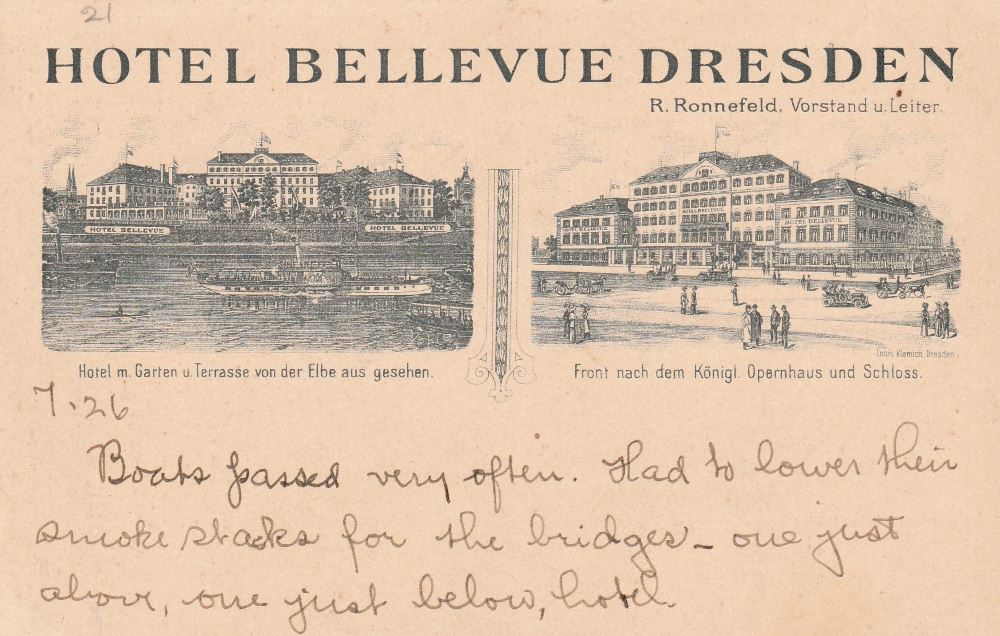 21
HOTEL BELLEVUE DRESDEN
R. Ronnefeld, Vorstand u. Leiter.
HOTEL BELLEVUE
HOTEL BELLEVUE
HOTEL BELLEVUE
HOTEL BELLEVUE
HOTEL BELLEVUE
Louis Klemich, Dresden.
Hotel m. Garten u. Terrasse von der Elbe aus gesehen.
Front nach dem Königl. Opernhaus und Schloss.
7.26
Boats passed very often. Had to lower their
smoke stacks for the bridges – one just
above, one just below, hotel.